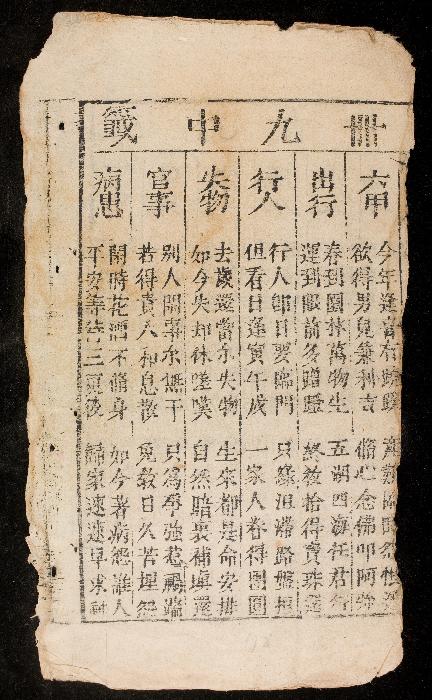 卌九中籤
六甲
今年運當有
欲得男兒兼利吉 脩心念佛叩阿
出行
春到園林萬物生 五湖四海任君行
運到眼前多蹭蹬 終被拾得寶珠還
行人
行人即日要臨門 只緣沮滯路盤桓
但看日逢寅午戌 一家人眷得團圓
失物
去歲還嘗示失物 生來都是命安排
如今失却休嗟嘆 自然暗裏補填還
官事
別人閑事示無干 只為爭強惹禍端
若得貴人和息散 免教日久苦埋怨
病患
閑時花酒不脩身 如今著病怨誰人
平安等待三更後 歸家速速早求神